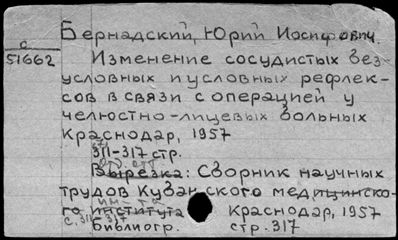 Бернадский, Юрий Иосифович.
с
51662
Изменение сосудистых без
условных и условных рефлек-
сов в связи с операцией у
челюстно-лицевых больных
Краснодар, 1957
311-317 стр.
Вырезка: Сборник научных
трудов Кубанского медицинско-
го института Краснодар, 1957
с. 311-317
библиогр. стр. 317